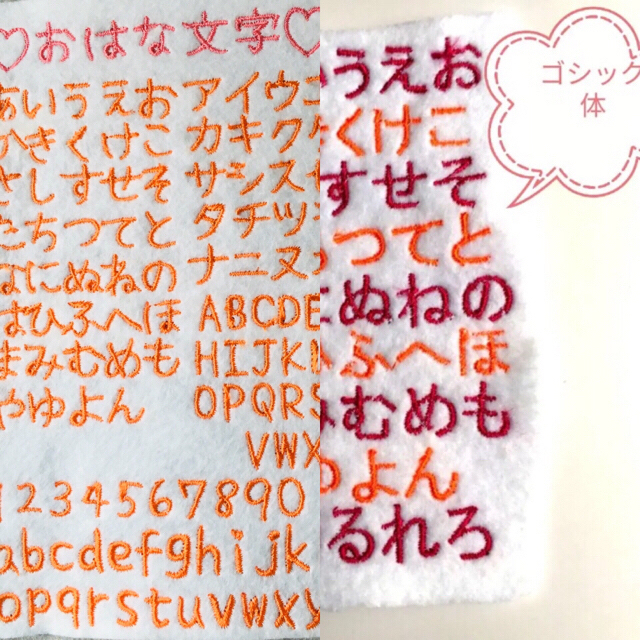 ♡おはな文字♡
あいうえおアイウエ
かきくけこカキクケ
さしすせそサシスセ
たちつてとタチツテ
なにぬねのナニヌネ
はひふへほABCDE
まみむめもHIJK
やゆよんOPQRS
VWX
1234567890
abcdefghijk
opqrstuvwxy
いうえお
きくけこ
すせそ
ちつてと
にぬねの
ひふへほ
みむめも
ゆよん
るれろ
ゴシック
体